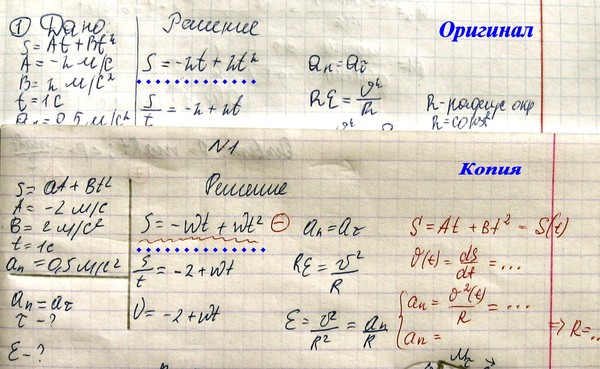 ① Дано
S = At + Bt²
A = -2 м/с
B = 2 м/с²
t = 1 с
aₙ = 0,5 м/с²
Решение
S = -2t + 2t²
S/t = -2 + 2t
aₙ = aτ
RE = v²/R
R - радиус окр
R = const
Оригинал
N1
Копия
S = at + Bt²
A = -2 м/с
B = 2 м/с²
t = 1c
aₙ = 0,5 м/с²
aₙ = aτ
τ - ?
ε - ?
Решение
S = -wt + wt² ⊖
S/t = -2 + wt
v = -2 + wt
aₙ = aτ
RE = v²/R
ε = v²/R² = aₙ/R
S = At + Bt² = S(t)
v(t) = ds/dt = ...
aₙ = v²(t)/R = ...
aₙ =
⇒ R = ..